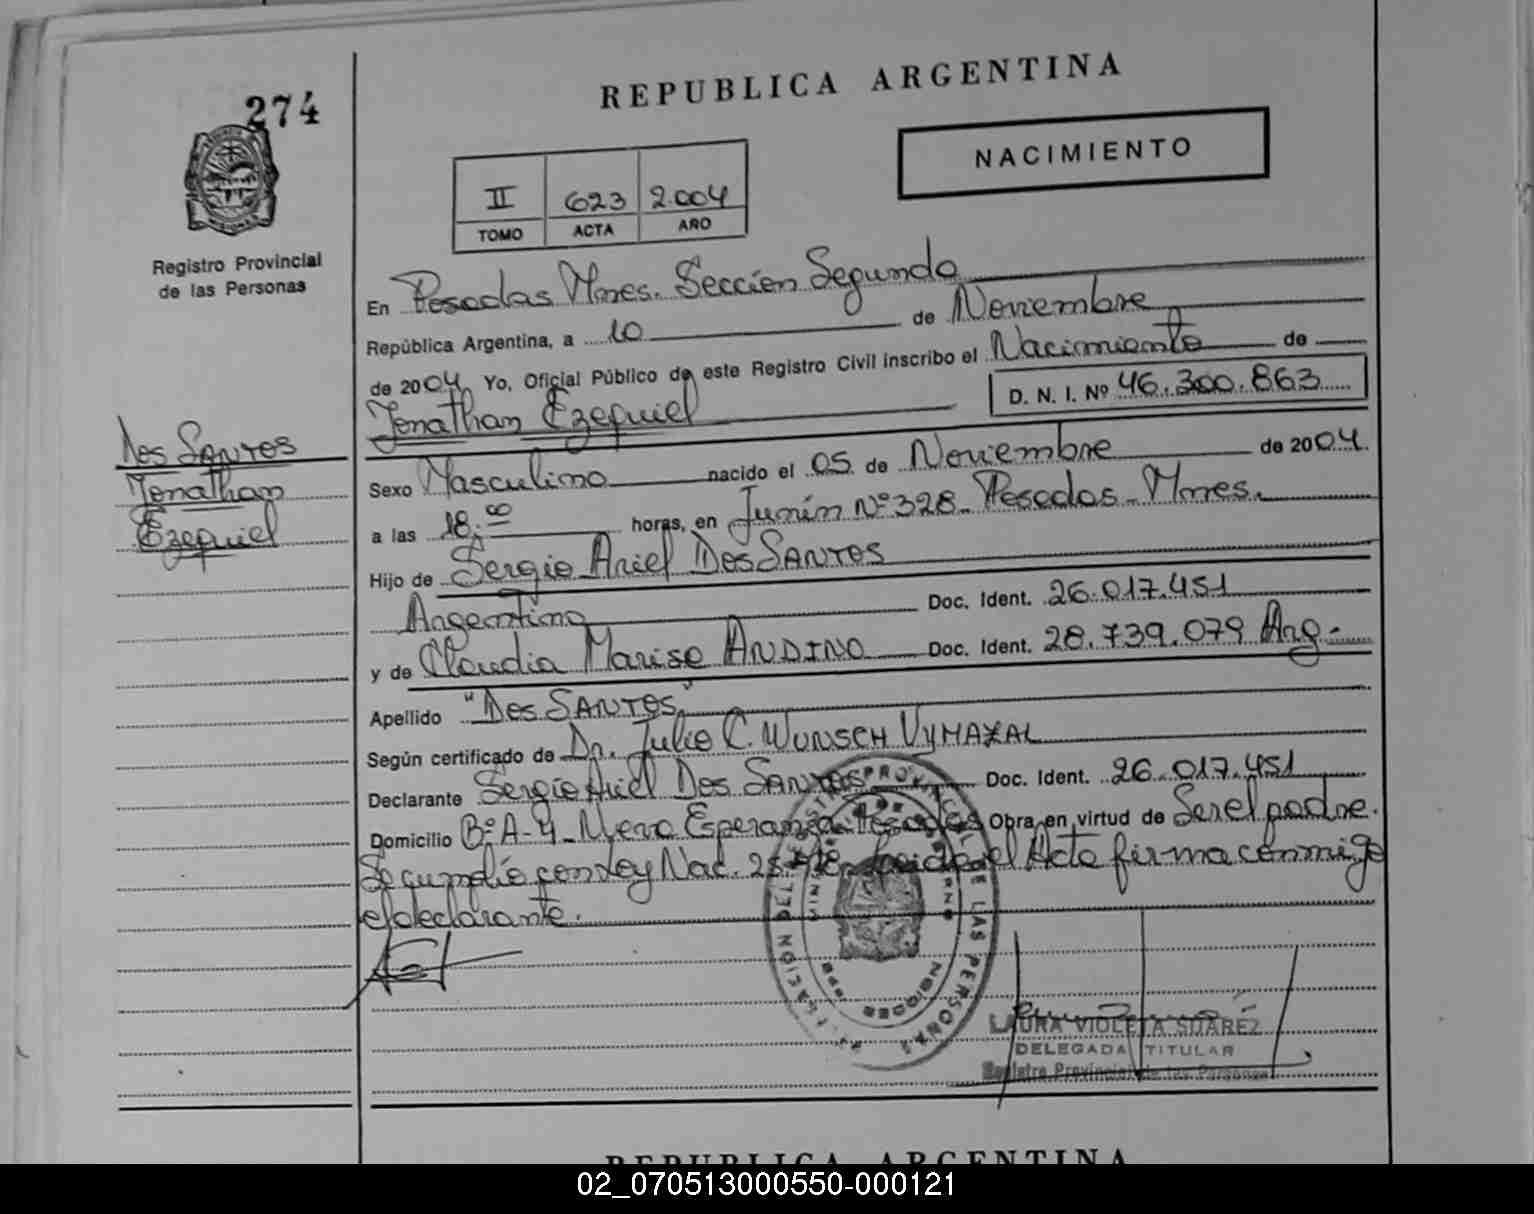 274
REPUBLICA ARGENTINA
NACIMIENTO
II 623 2.004
TOMO ACTA AÑO
Registro Provincial
de las Personas
En Posadas Mnes. Sección Segunda
República Argentina, a 10 de Noviembre
de 2004 Yo, Oficial Público de este Registro Civil inscribo el Nacimiento de
Jonathan Ezequiel D. N. I. Nº 46.300.863
Dos SANTOS
Jonathan
Ezequiel
Sexo Masculino nacido el 05 de Noviembre de 2004.
a las 18.00 horas, en Junín Nº 328 - Posadas - Mnes.
Hijo de Sergio Ariel Dos SANTOS
Argentino Doc. Ident. 26.017.451
y de Claudia Marisa ANDINO Doc. Ident. 28.739.079 Arg.
Apellido "Dos SANTOS"
Según certificado de Dr. Julio C. WUNSCH VYMAZAL
Declarante Sergio Ariel Dos SANTOS Doc. Ident. 26.017.451
Domicilio Bº A-4 - Nueva Esperanza - Posadas Obra en virtud de Ser el padre.
Se cumplió con Ley Nac. el Acta firma conmigo
el declarante.
LAURA VIOLETA SUAREZ
DELEGADA TITULAR
Registro Provincial de las Personas
REPUBLICA ARGENTINA
02_070513000550-000121